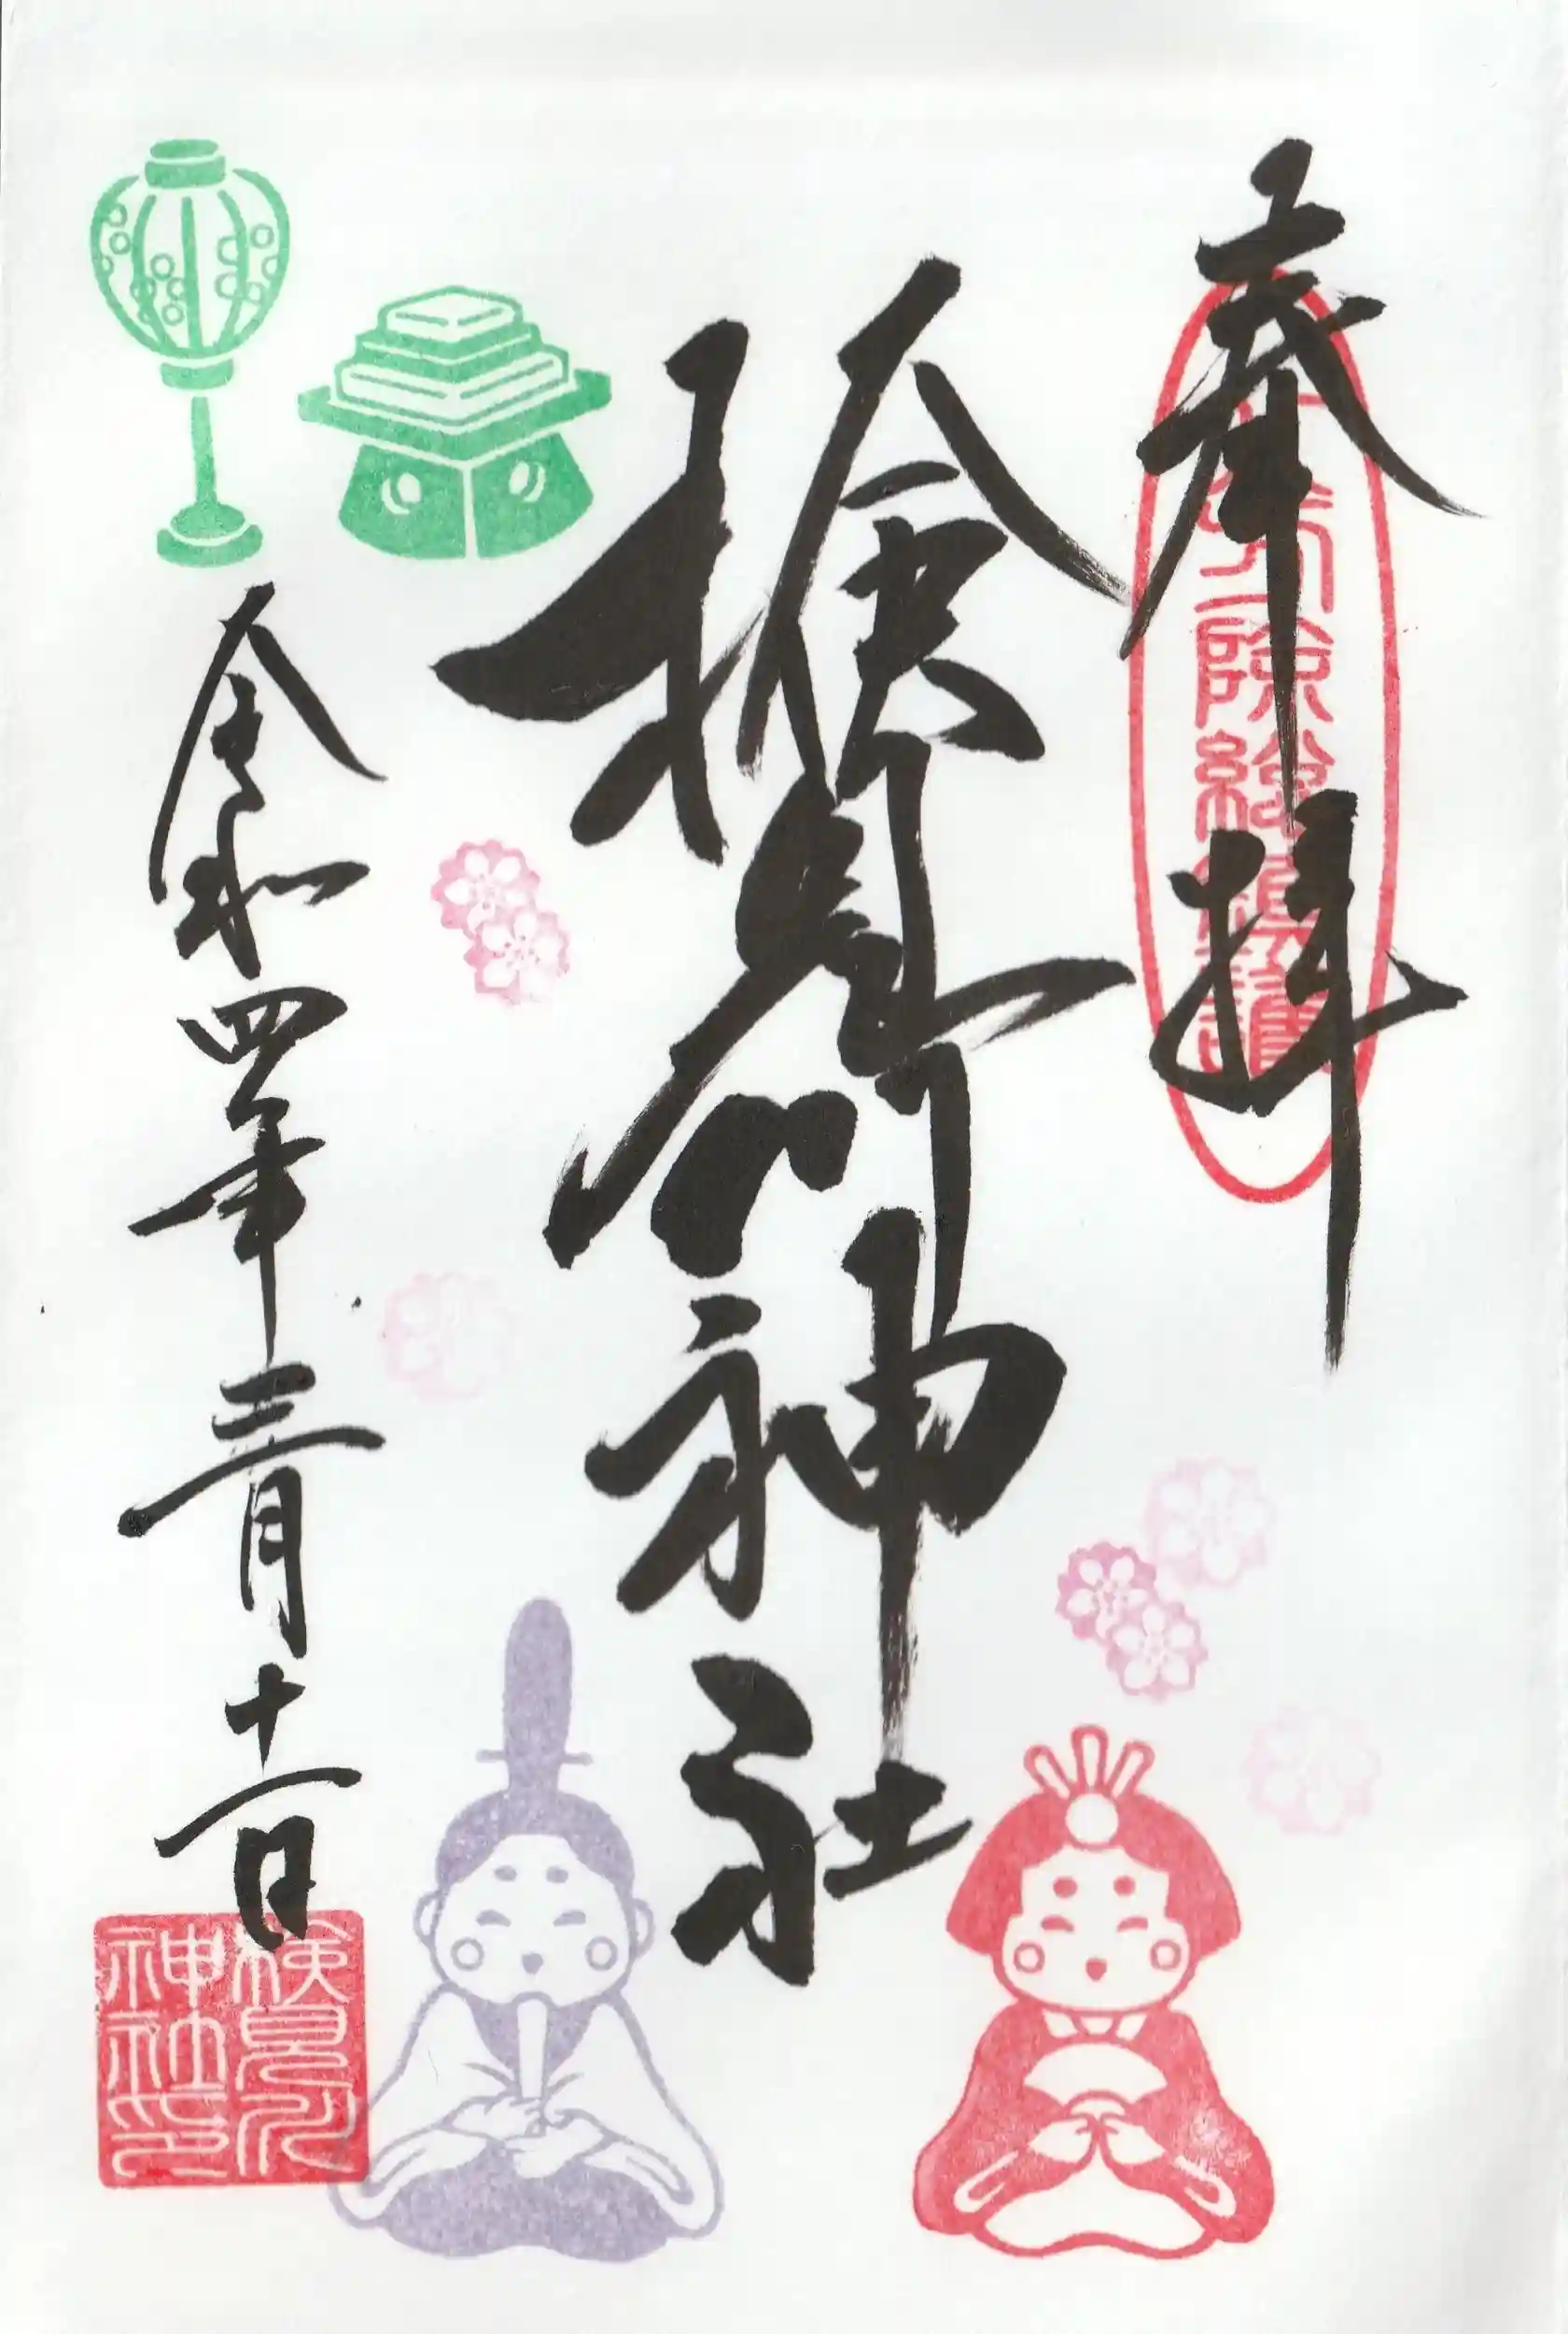 奉拝
八方除総鎮護
検見川神社
令和四年三月十一日
検見川
神社印